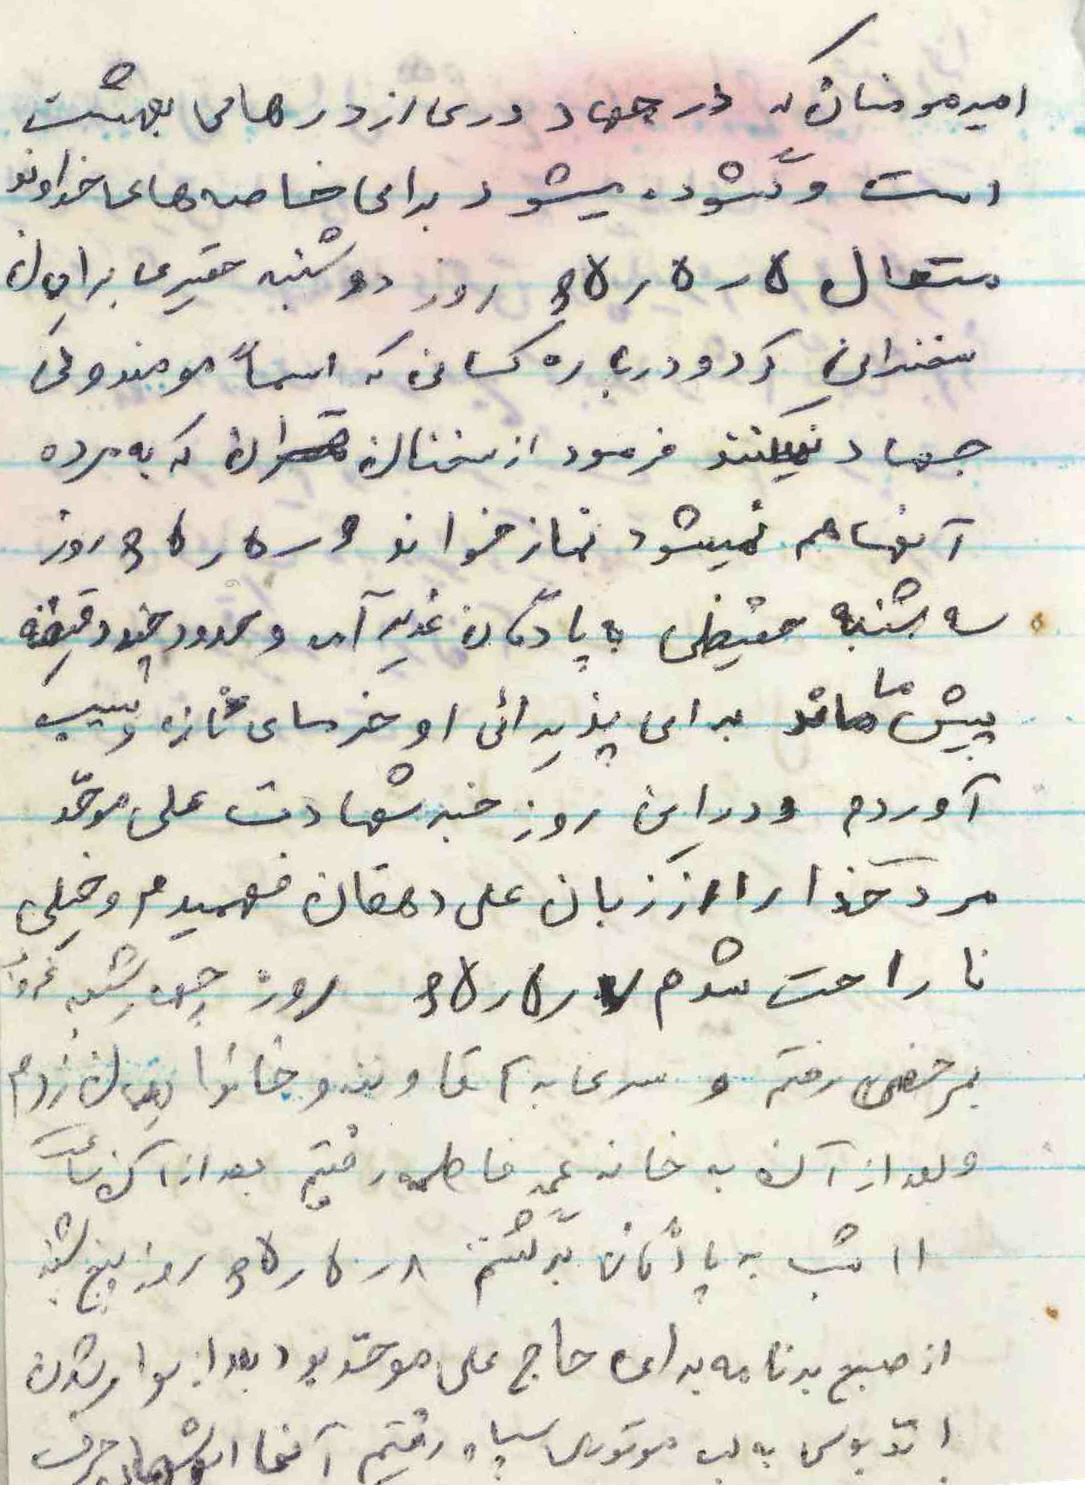 امیرمومنان که در جهاد دری از درهای بهشت
است و گشوده میشود برای خاصه های خداوند
متعال ۵ر۵ر۶۵ روز دوشنبه حقیری برایمان
سخنرانی کرد و درباره کسانی که اسماً مومند ولی
جهاد نمیکنند فرمود از سخنان قران که به مرده
آنها هم نمیشود نماز خواند ۶ر۵ر۶۵ روز
سه شنبه به پادگان غدیر آمد و حدود چند دقیقه
پیش ما ماند برای پذیرائی او خرمای تازه و سیب
آوردم و در این روز خبر شهادت علی موحّد
مرد خدا را از زبان علی دهقان فهمیدم و خیلی
ناراحت شدم ۷ر۵ر۶۵ روز چهارشنبه
برخصی رفتم و سری به و زدم
و بعد از آن به خانه عمه فاطمه رفتم بعد از آن ساعت
۱۱ شب به پادگان برگشتم ۸ر۵ر۶۵ روز پنج شنبه
از صبح برنامه برای حاج علی موحّد بود بعد از سوار شدن
اتوبوس به لب موتوری سپاه رفتیم آنجا